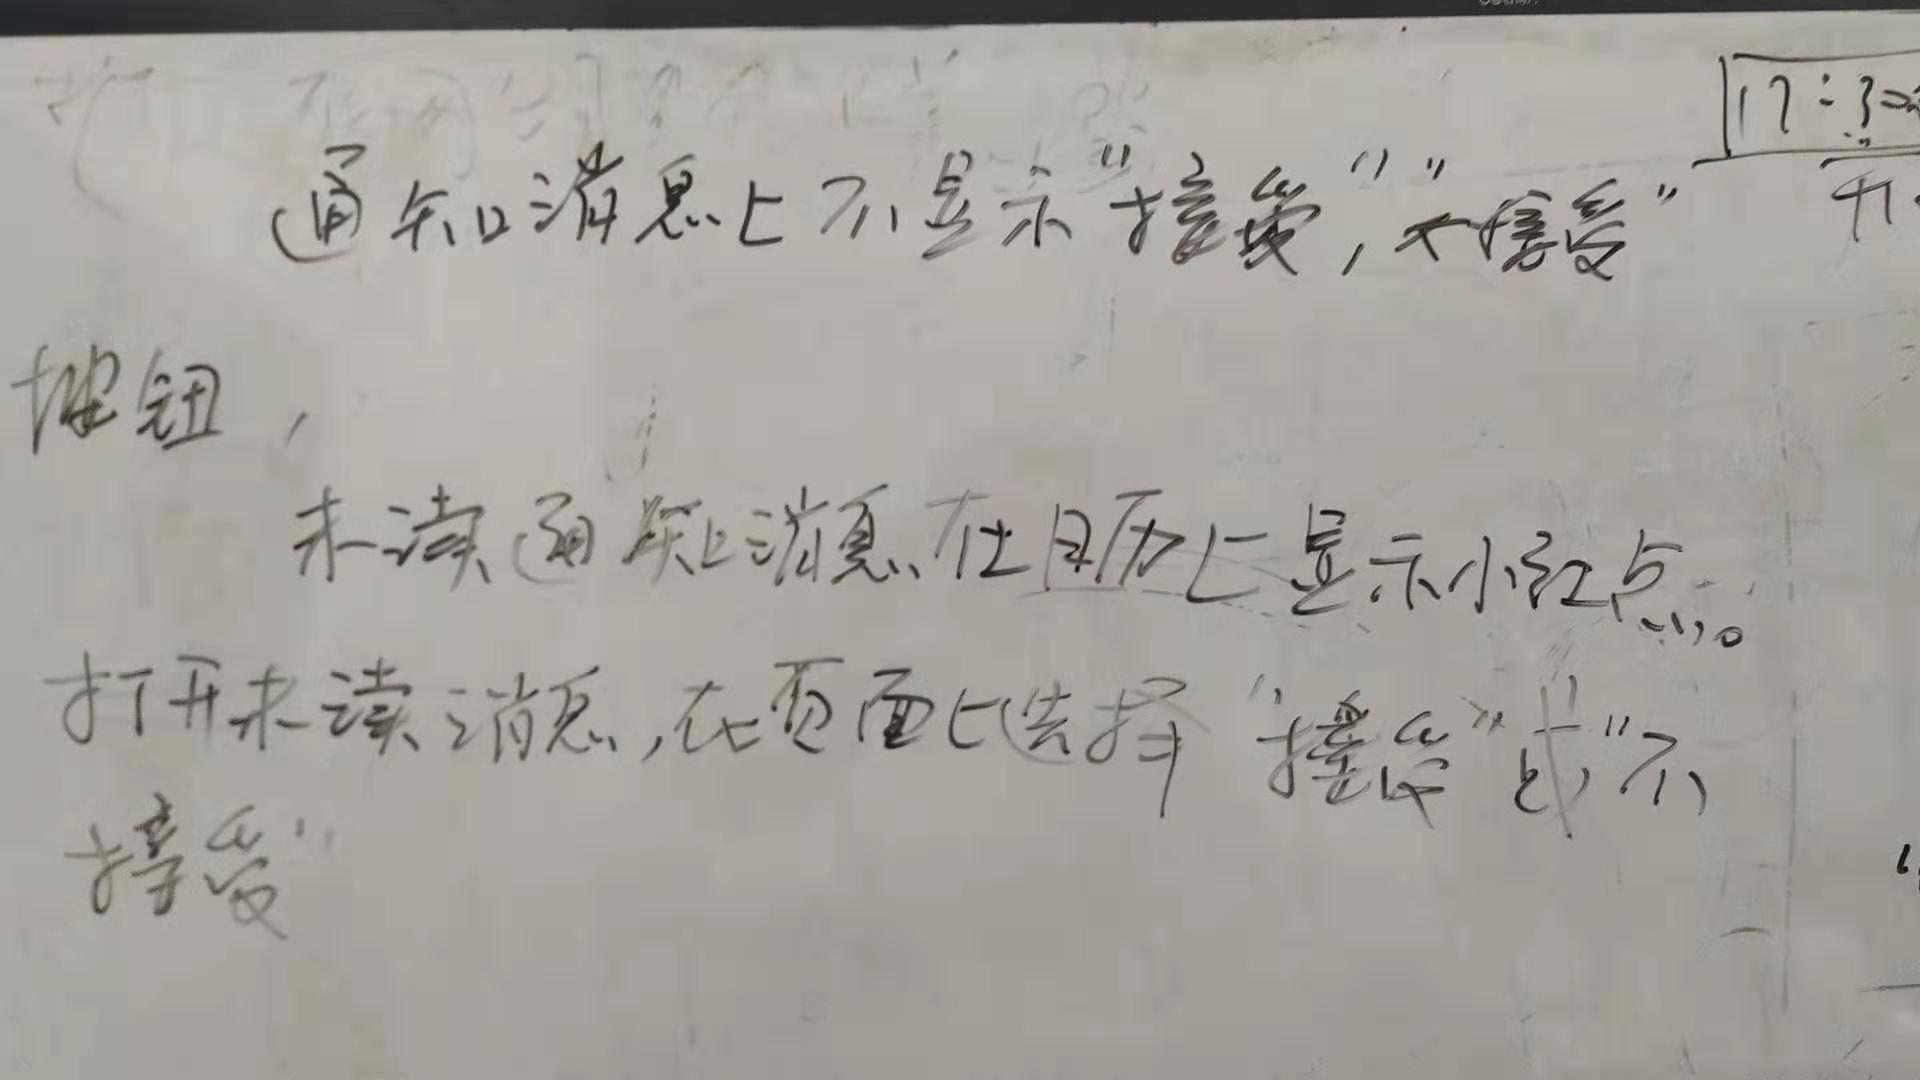 17÷3=
通知消息上不显示"接受","不接受"
按钮,
未读通知消息在日历上显示小红点。
打开未读消息,在页面上选择"接受"或"不
接受"